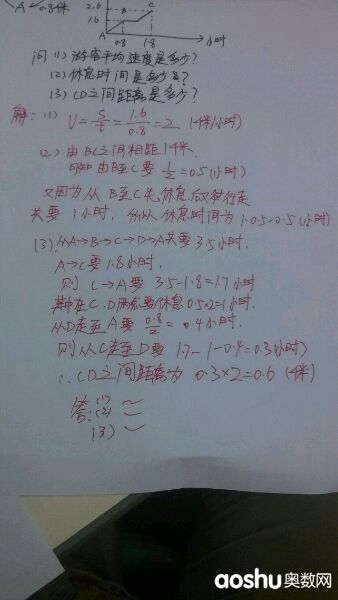 A 0.8千米
2.6
1.6
B
C
A
0.8 1.8 小时
问 (1) 游客平均速度是多少?
(2) 休息时间是多少?
(3) CD之间距离是多少?
解: (1) V = S/t = 1.6/0.8 = 2 (千米/小时)
(2) 由BC之间相距1千米.
可知由B至C要 1/2 = 0.5 (小时)
又因为从B至C先休息后又等行走
共要1小时, 所以休息时间为 1-0.5=0.5 (小时)
(3) 从A→B→C→D→A共要3.5小时.
A→C要1.8小时.
则 C→A要 3.5-1.8=1.7小时
其中在C.D两点要休息0.5×2=1小时.
从D走至A要 0.8/2 = 0.4小时.
则从C走至D要 1.7-1-0.4=0.3(小时)
∴CD之间距离为 0.3×2=0.6 (千米)
答: (1) ~
(2) ~
(3) ~
aoshu奥数网